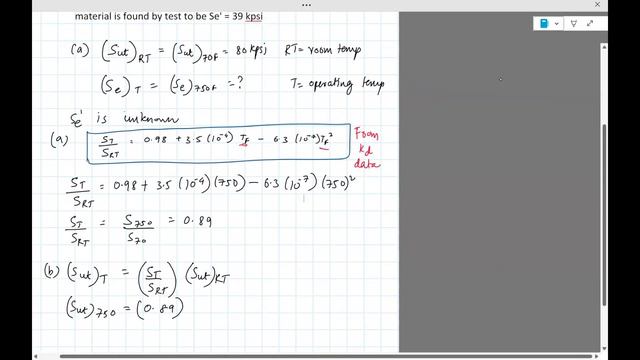 material is found by test to be Se' = 39 kpsi
(a) (Sut)RT = (Sut)70F = 80 kpsi RT = room temp
(Se)T = (Se)750F = ? T = operating temp
Se' is unknown
(a) ST/SRT = 0.98 + 3.5 (10^-4) TF - 6.3 (10^-7) TF^2 From kd data
ST/SRT = 0.98 + 3.5 (10^-4) (750) - 6.3 (10^-7) (750)^2
ST/SRT = S750/S70 = 0.89
(b) (Sut)T = (ST/SRT) (Sut)RT
(Sut)750 = (0.89)